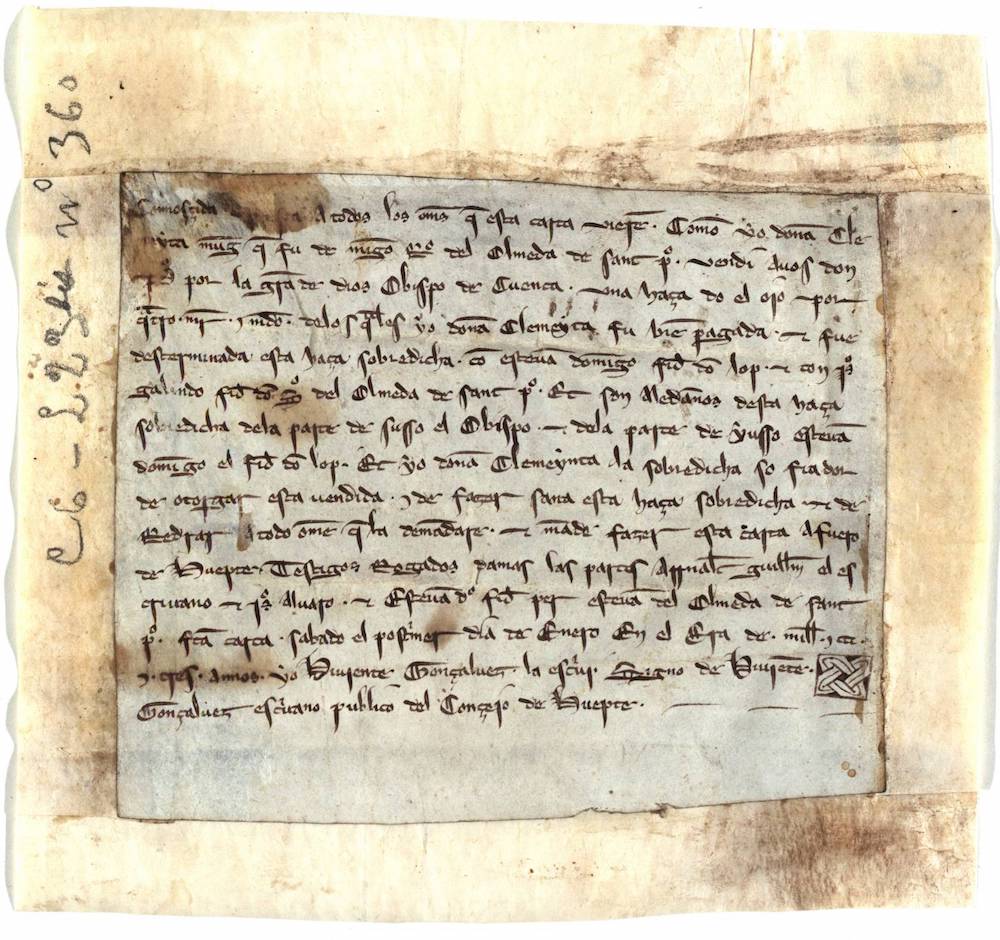 C6 - L.23 nº 360
Connosçida a todos los om̄s q̄ esta carta vierē. Comō yo donā Cle
mēynta muḡ q̄ fu de mīgo del Olmeda de sant p̊. vendi Avos don
por la grā de dios Obispo de Cuenca. vna haça do el oio por
q̄tro. mr̄. ⁊ mēdō. delos q̄les yo donā Clemeynta fu biē pagada. ⁊ fue
desterminada esta haça sobredicha. cō estevā domīgo fid̄ dō lop. ⁊ con
galindo fid̄ dō del Olmeda de sant p̊. Et son Aledānos desta haça
sobredicha dela parte de susso el Obispo. ⁊ dela parte de yusso estevā
domīgo el fid̄ dō lop. Et yo donā Clemeynta la sobredicha so fiador
de otorgar esta vendida. ⁊ de fazer sana esta haça sobredicha. ⁊ de
Redrar Atodo ōme q̄ la demādare. ⁊ māde fazer esta carta Afuero
de Huepte. Testigos Rogados damas las partes Arnalt guillm̄ el es
crivano ⁊ Alvaro. ⁊ Estevā d̊ fid̄ per estevā del Olmeda de sant
p̊. fc̄a carta. sabado el postmer dia de Enero En el Era de. mill̄. ⁊ ccc.
⁊. tres. Annos. yo Viviente Gonçalvez. la esc̄vi. Signo de Viviēte.
Gonçalvez esc̄vano publico del Conçeio de Huepte.